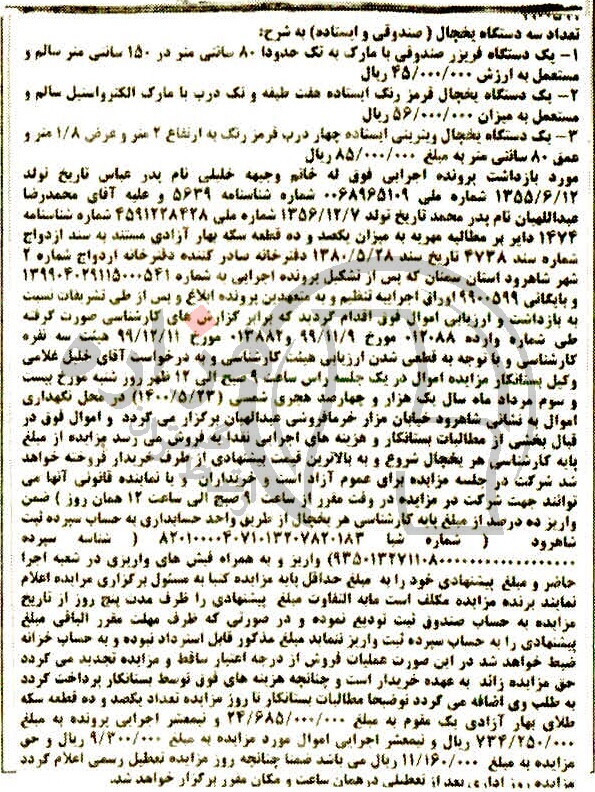 تعداد سه دستگاه یخچال ( صندوقی و ایستاده) به شرح:
۱– یک دستگاه فریزر صندوقی با مارک به تک حدودا ۸۰ سانتی متر در ۱۵۰ سانتی متر سالم و
مستعمل به ارزش ۴۵/۰۰۰/۰۰۰ ریال
۲– یک دستگاه یخچال قرمز رنگ ایستاده هفت طبقه و تک درب با مارک الکترواستیل سالم و
مستعمل به میزان ۵۶/۰۰۰/۰۰۰ ریال
۳– یک دستگاه یخچال ویترینی ایستاده چهار درب قرمز رنگ به ارتفاع ۲ متر و عرض ۱/۸ متر و
عمق ۸۰ سانتی متر به مبلغ ۸۵/۰۰۰/۰۰۰ ریال
مورد بازداشت پرونده اجرایی فوق له خانم وجیهه خلیلی نام پدر عباس تاریخ تولد
۱۳۵۵/۶/۱۲ شماره ملی ۰۰۶۸۹۶۵۱۰۹ شماره شناسنامه ۵۶۳۹ و علیه آقای محمدرضا
عبداللهیان نام پدر محمد تاریخ تولد ۱۳۵۶/۱۲/۷ شماره ملی ۴۵۹۱۲۲۸۴۲۸ شماره شناسنامه
۱۴۷۴ دایر بر مطالبه مهریه به میزان یکصد و ده قطعه سکه بهار آزادی مستند به سند ازدواج
شماره سند ۴۷۳۸ تاریخ سند ۱۳۸۰/۵/۲۸ دفترخانه صادر کننده دفترخانه ازدواج شماره ۲
شهر شاهرود استان سمنان که پس از تشکیل پرونده اجرایی به شماره ۱۳۹۹۰۴۰۲۹۱۱۵۰۰۰۵۴۱
و بایگانی ۹۹۰۰۵۹۹ اوراق اجراییه تنظیم و به متعهدین پرونده ابلاغ و پس از طی تشریفات نسبت
به بازداشت و ارزیابی اموال فوق اقدام گردید که برابر گزارش های کارشناسی صورت گرفته
طی شماره وارده ۰۱۲۰۸۸ مورخ ۹۹/۱۱/۹ و ۰۱۳۸۸۲ مورخ ۹۹/۱۲/۱۱ هیئت سه نفره
کارشناسی و با توجه به قطعی شدن ارزیابی هیئت کارشناسی و به درخواست آقای خلیل غلامی
وکیل بستانکار مزایده اموال در یک جلسه راس ساعت ۹ صبح الی ۱۲ ظهر روز شنبه مورخ بیست
و سوم مرداد ماه سال یک هزار و چهارصد هجری شمسی (۱۴۰۰/۵/۲۳) در محل نگهداری
اموال به نشانی شاهرود خیابان مزار خرمافروشی عبدالهیان برگزار می گردد و اموال فوق در
قبال بخشی از مطالبات بستانکار و هزینه های اجرایی نقدا به فروش می رسد مزایده از مبلغ
پایه کارشناسی هر یخچال شروع و به بالاترین قیمت پیشنهادی از طرف خریدار فروخته خواهد
شد شرکت در جلسه مزایده برای عموم آزاد است و خریداران و یا نماینده قانونی آنها می
توانند جهت شرکت در مزایده در وقت مقرر از ساعت ۹ صبح الی ساعت ۱۲ همان روز ) ضمن
واریز ده درصد از مبلغ پایه کارشناسی هر یخچال از طریق واحد حسابداری به حساب سپرده ثبت
شاهرود ( شماره شبا ۸۲۰۱۰۰۰۰۴۰۷۱۰۱۳۲۰۷۸۲۰۱۸۳ ( شناسه سپرده
واریز و به همراه فیش های واریزی در شعبه اجرا
حاضر و مبلغ پیشنهادی خود را به مبلغ حداقل پایه مزایده کتبا به مسئول برگزاری مزایده اعلام
نمایند برنده مزایده مکلف است مابه التفاوت مبلغ پیشنهادی را ظرف مدت پنج روز از تاریخ
مزایده به حساب صندوق ثبت تودیع نموده و در صورتی که ظرف مهلت مقرر الباقی مبلغ
پیشنهادی را به حساب سپرده ثبت واریز ننماید مبلغ مذکور قابل استرداد نبوده و به حساب خزانه
ضبط خواهد شد در این صورت عملیات فروش از درجه اعتبار ساقط و مزایده تجدید می گردد
حق مزایده زائد به عهده خریدار است و چنانچه هزینه های فوق توسط بستانکار پرداخت گردد
به طلب وی اضافه می گردد توضیحا مطالبات بستانکار تا روز مزایده تعداد یکصد و ده قطعه سکه
طلای بهار آزادی یک مقوم به مبلغ ۲۴/۶۸۵/۰۰۰/۰۰۰ و نیمعشر اجرایی پرونده به مبلغ
۷۳۴/۲۵۰/۰۰۰ ریال و نیمعشر اجرایی اموال مورد مزایده به مبلغ ۹/۳۰۰/۰۰۰ ریال و حق
مزایده به مبلغ ۱۱/۱۶۰/۰۰۰ ریال می باشد ضمنا چنانچه روز مزایده تعطیل رسمی اعلام گردد
مزایده روز اداری بعد از تعطیلی درهمان ساعت و مکان مقرر برگزار خواهد شد.